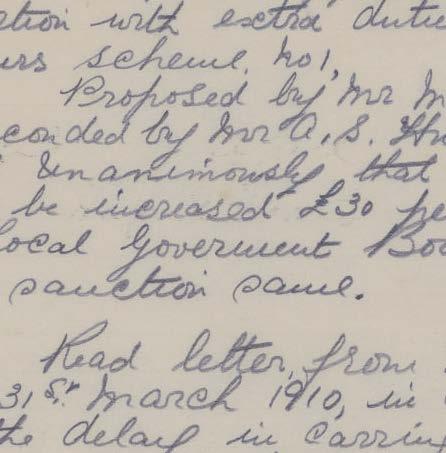 ction with extra duti
urs scheme, No 1,
Proposed by Mr M
conded by Mr A. S. Hu
Unanimously that
be increased £30 pe
Local Goverment Bo
sanction same.
Read letter, from
31st March 1910, in
the delay in carryin